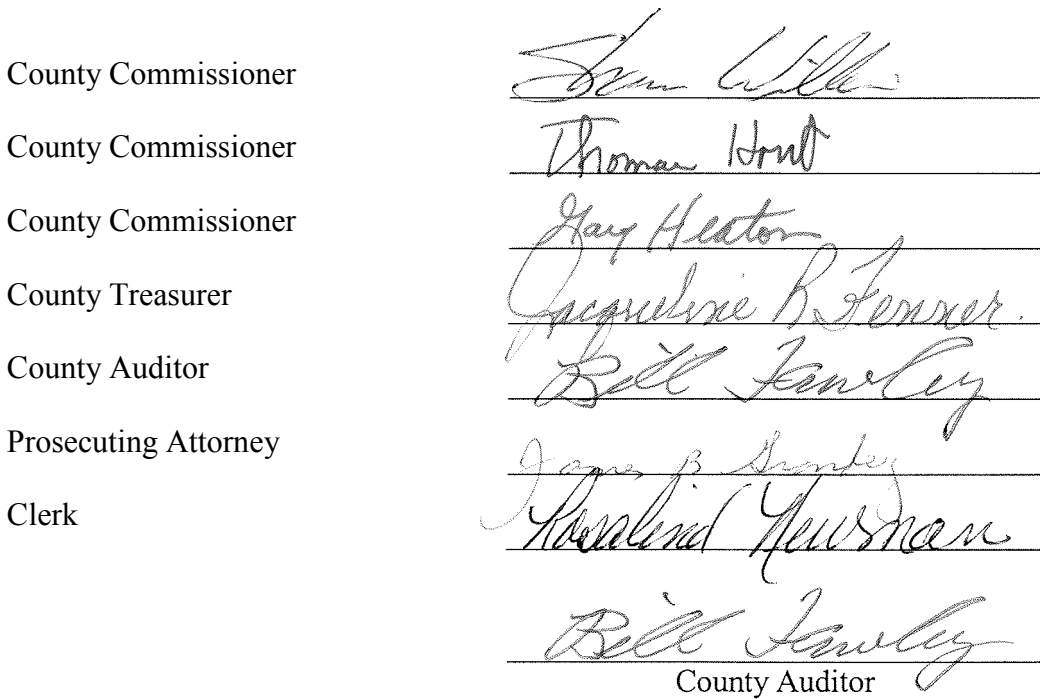 County Commissioner
County Commissioner Thomas Hout
County Commissioner Gary Heaton
County Treasurer Jacqueline R Fenner.
County Auditor Bill Fawley
Prosecuting Attorney James B
Clerk Rosalind Newman
Bill Fawley
County Auditor